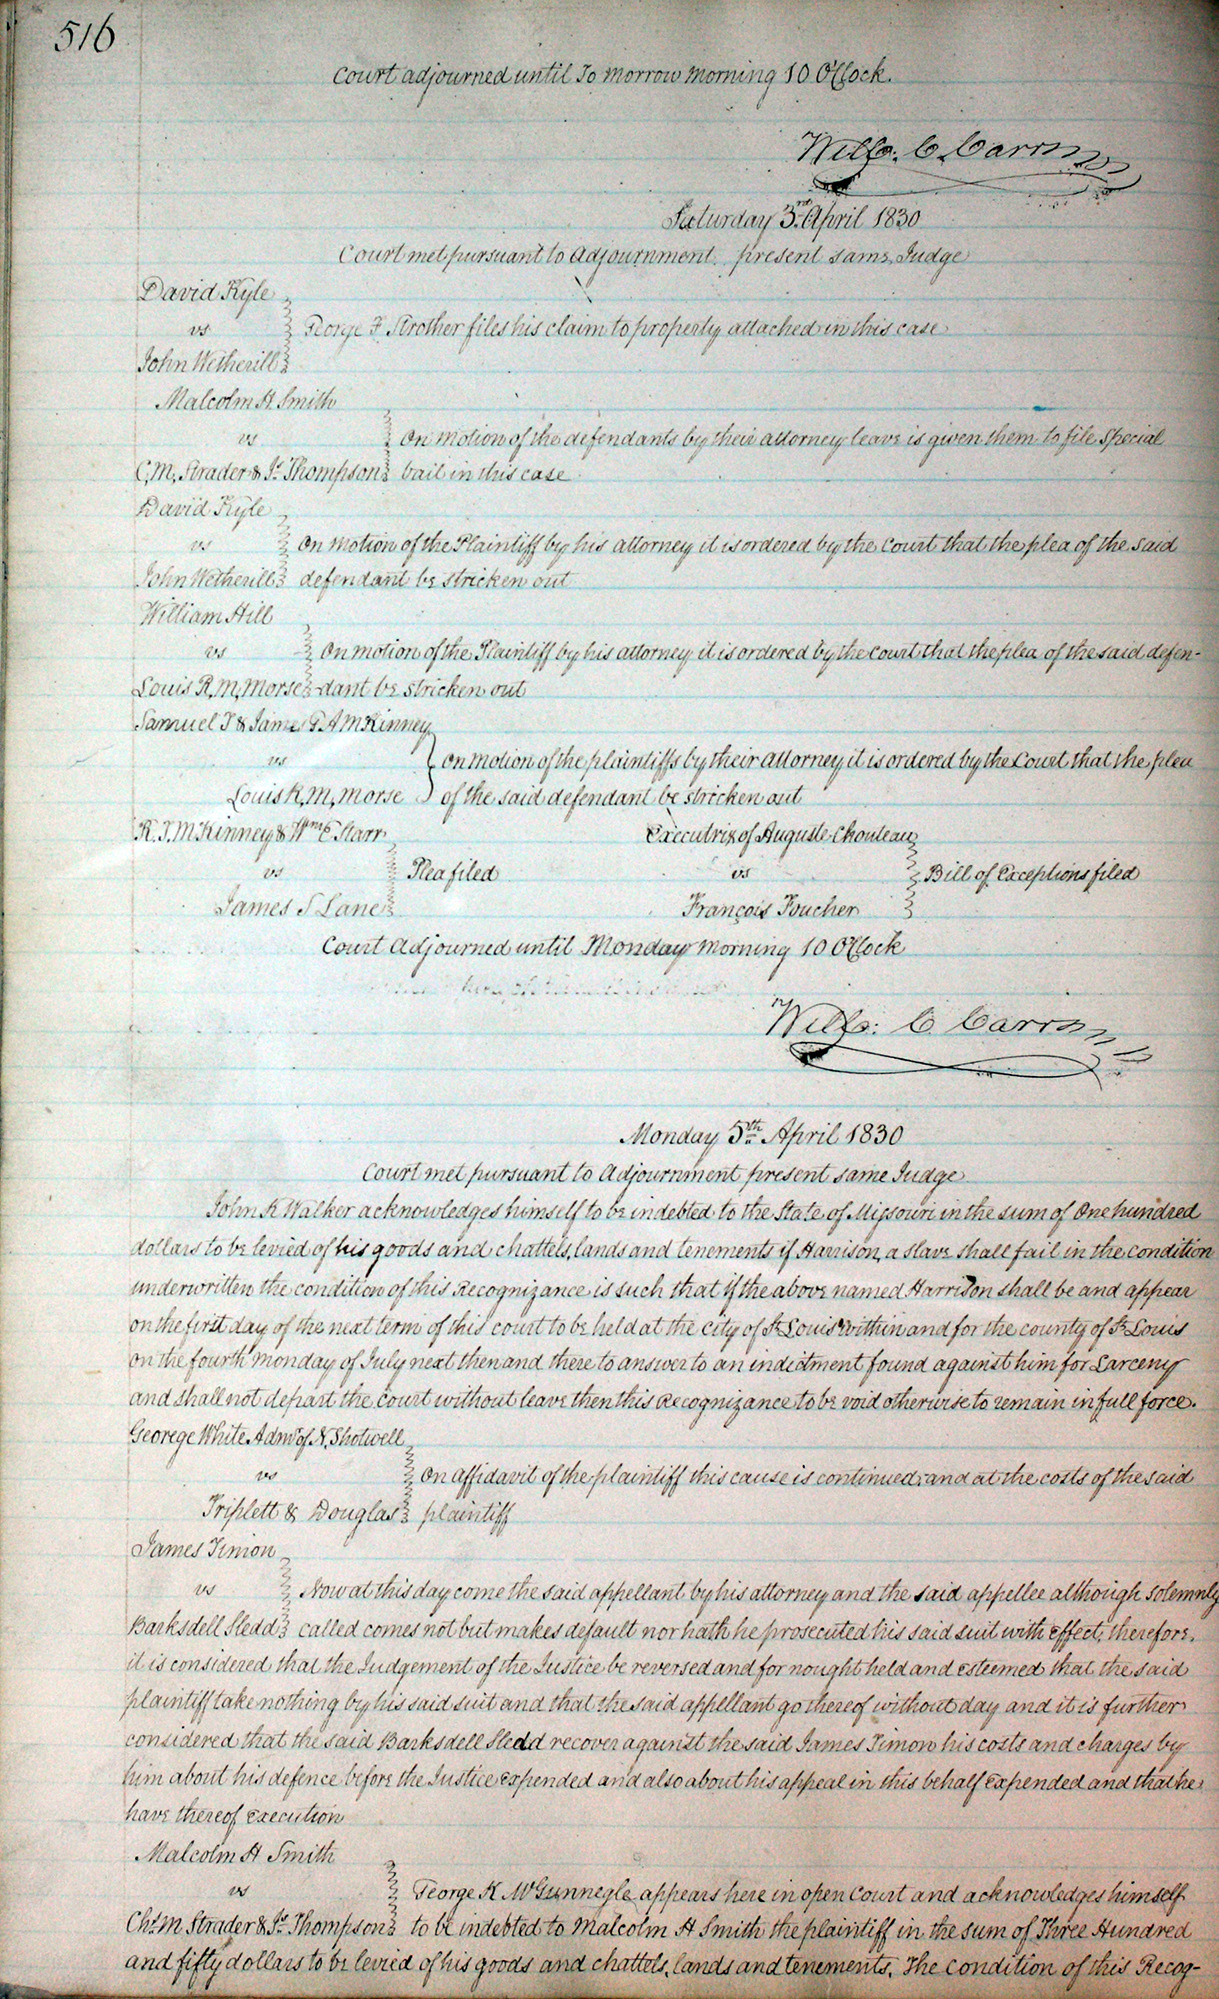 516
Court adjourned until To morrow morning 10 O'Clock.
Will: C. Carr
Saturday 3rd April 1830
Court met pursuant to adjournment. present same Judge
David Kyle
vs
George F Strother files his claim to property attached in this case
John Wetherill
Malcolm H. Smith
vs
On motion of the defendants by their attorney leave is given them to file Special
C, M, Strader & Js. Thompson
bail in this case
David Kyle
vs
On motion of the Plaintiff by his attorney it is ordered by the Court that the plea of the said
John Wetherill
defendant be stricken out
William Hill
vs
On motion of the Plaintiff by his attorney it is ordered by the court that the plea of the said defen-
Louis R, M, Morse
dant be stricken out
Samuel T & James G A McKinney
vs
on motion of the plaintiffs by their attorney it is ordered by the Court that the plea
Louis R, M, Morse
of the said defendant be stricken out
R. T. McKinney & Wm. E Starr
vs
Plea filed
James S Lane
Executrix of Auguste Chouteau
vs
Bill of Exceptions filed
François Foucher
Court Adjourned until Monday morning 10 O'Clock
Will: C Carr
Monday 5th April 1830
Court met pursuant to adjournment present same Judge
John K Walker acknowledges himself to be indebted to the State of Missouri in the sum of One hundred
dollars to be levied of his goods and chattels, lands and tenements if Harrison, a slave shall fail in the condition
underwritten the condition of this Recognizance is such that if the above named Harrison shall be and appear
on the first day of the next term of this court to be held at the city of St Louis within and for the county of St Louis
on the fourth monday of July next then and there to answer to an indictment found against him for Larceny
and shall not depart the court without leave then this Recognizance to be void otherwise to remain in full force.
Georege White Admr of N. Shotwell
vs
On affidavit of the plaintiff this cause is continued, and at the costs of the said
Triplett & Douglas
plaintiff
James Timon
vs
Now at this day come the said appellant by his attorney and the said appellee although solemnly
Barksdell Sledd
called comes not but makes default nor hath he prosecuted his said suit with effect, therefore,
it is considered that the Judgement of the Justice be reversed and for nought held and esteemed that the said
plaintiff take nothing by his said suit and that the said appellant go thereof without day and it is further
considered that the said Barksdell Sledd recover against the said James Timon his costs and charges by
him about his defence before the Justice expended and also about his appeal in this behalf expended and that he
have thereof execution
Malcolm H Smith
vs
George K McGunnegle appears here in open Court and acknowledges himself
Chs. M Strader & Js. Thompson
to be indebted to Malcolm H Smith the plaintiff in the sum of Three Hundred
and fifty dollars to be levied of his goods and chattels, lands and tenements. The condition of this Recog-